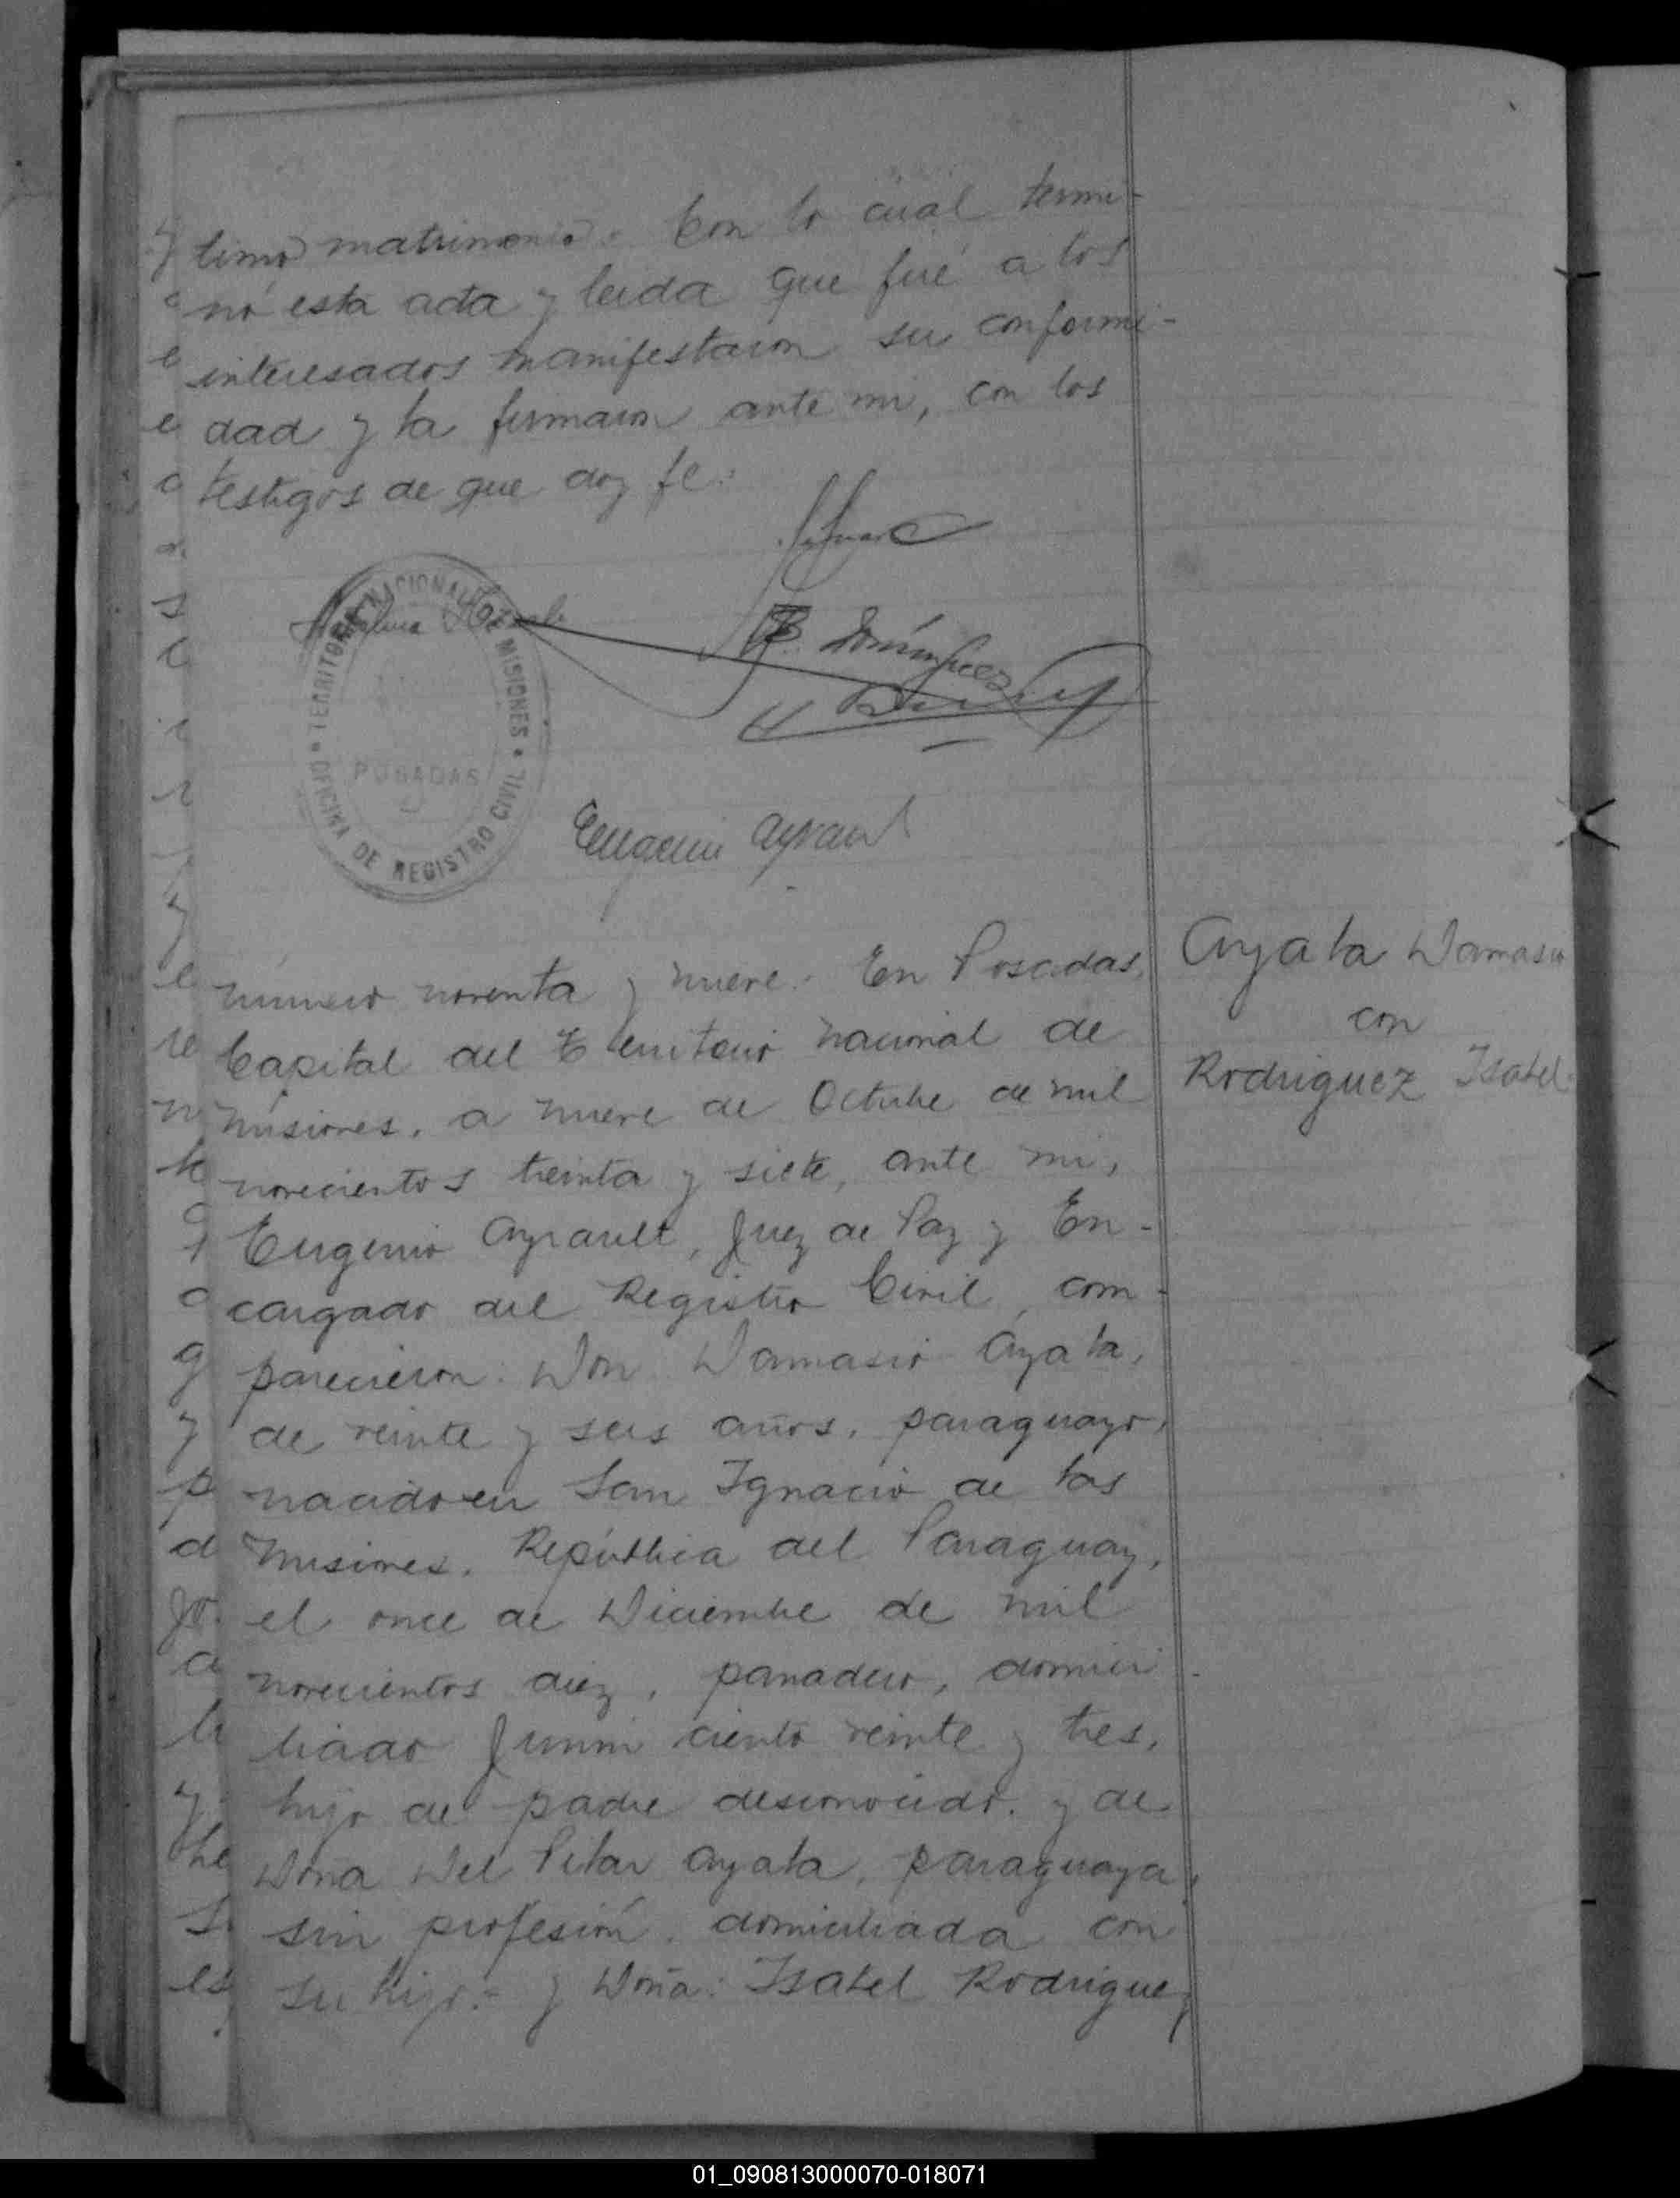 timo matrimonio. Con lo cual termi-
nó esta acta y leida que fué a los
interesados manifestaron su conformi-
dad y la firmaron ante mi, con los
testigos de que doy fe.
TERRITORIO NACIONAL DE MISIONES
POSADAS
OFICINA DE REGISTRO CIVIL
B. Domínguez
Eugenio Ayrault
Ayala Damasio
con
Rodriguez Isabel
número noventa y nueve. En Posadas,
Capital del Territorio nacional de
Misiones, a nueve de Octubre de mil
novecientos treinta y siete, ante mi,
Eugenio Ayrault, Juez de Paz y En-
cargado del Registro Civil, com-
parecieron: Don Damasio Ayala,
de veinte y seis años, paraguayo,
nacido en San Ignacio de las
Misiones, República del Paraguay,
el once de Diciembre de mil
novecientos diez, panadero, domici-
liado Junin ciento veinte y tres,
hijo de padre desconocido, y de
Doña Del Pilar Ayala, paraguaya,
sin profesión, domiciliada con
su hijo.- y Doña: Isabel Rodriguez
01_090813000070-018071